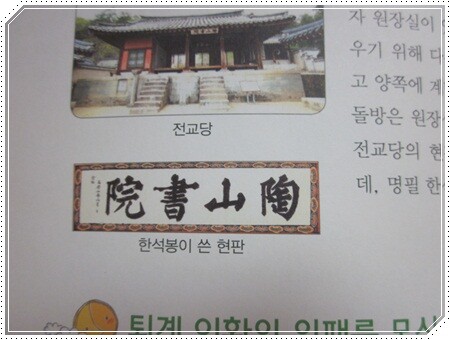 전교당
陶山書院
한석봉이 쓴 현판
자 원장실이
우기 위해 다
고 양쪽에 계
돌방은 원장
전교당의 현
데, 명필 한
퇴계 이황의 위패를 모신